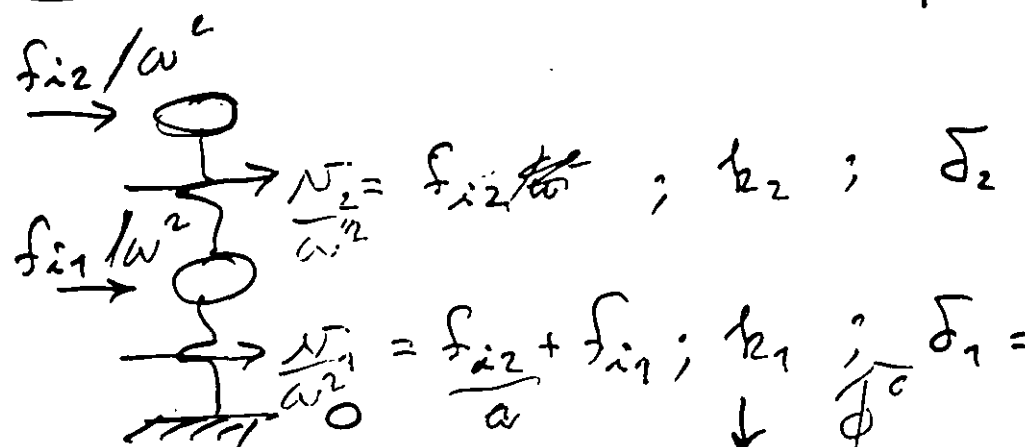 f_{i2}/ω²
V₂/ω² = f_{i2} ; k₂ ; δ₂
f_{i1}/ω²
V₁/ω² = f_{i2} + f_{i1} ; k₁ ; δ₁ =